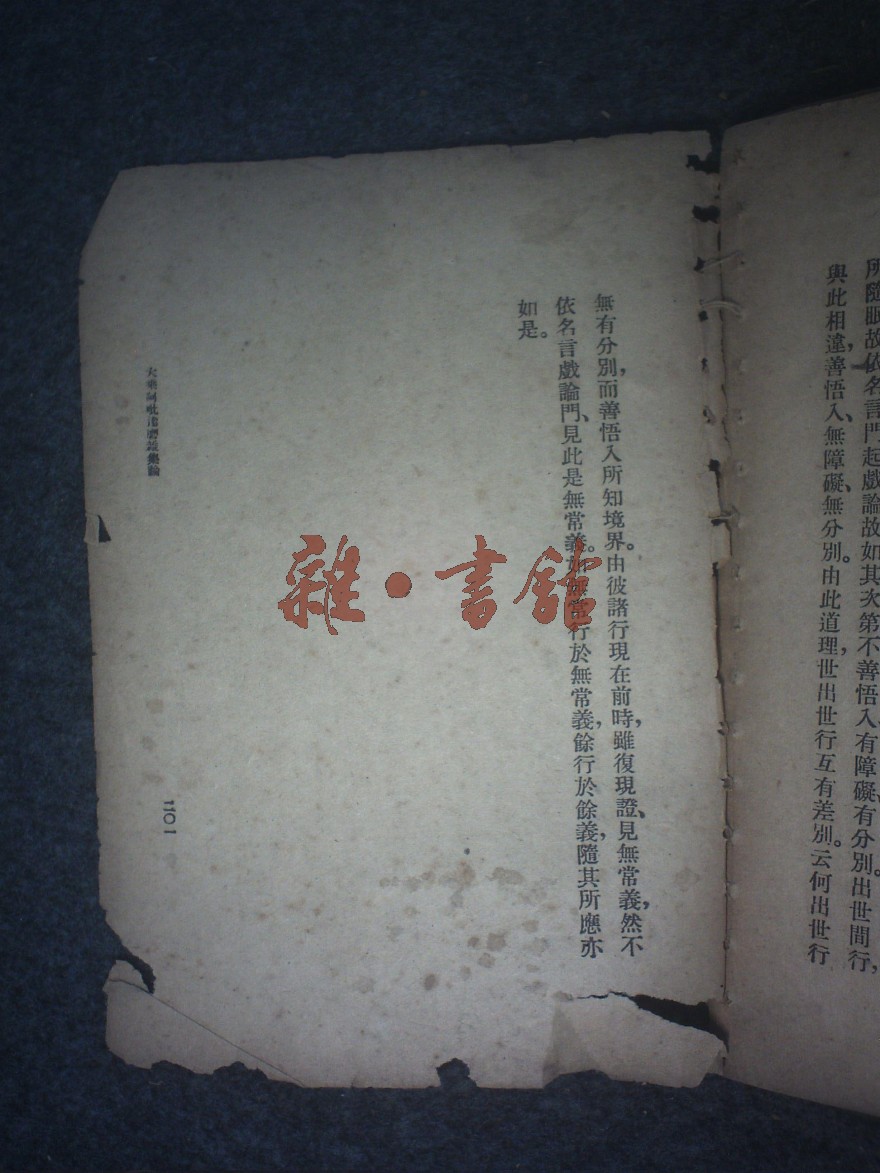 所隨眠故依名言門起戲論故如其次第不善悟入有障礙有分別。出世間行，
與此相違，善悟入、無障礙、無分別。由此道理，世出世行互有差別。云何出世行
無有分別，而善悟入所知境界。由彼諸行現在前時，雖復現證、見無常義，然不
依名言戲論門、見此是無常義。如無常行於無常義，餘行於餘義，隨其所應亦
如是。
大乘阿毗達磨雜集論
二〇一
雜·書館